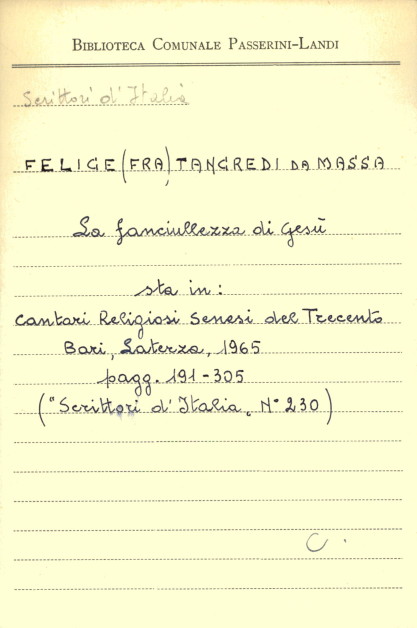 BIBLIOTECA COMUNALE PASSERINI-LANDI
Scrittori d'Italia
FELICE (FRA) TANCREDI DA MASSA
La fanciullezza di Gesù
sta in:
Cantari Religiosi Senesi del Trecento
Bari, Laterza, 1965
pagg. 191-305
("Scrittori d'Italia" N° 230)
C.